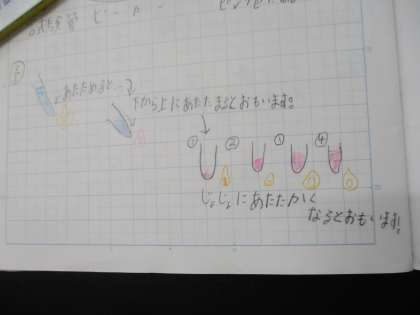 予
あたためると…
下から上にあたたまるとおもいます!
① ② ③ ④
じょじょにあたたかく
なるとおもいます!